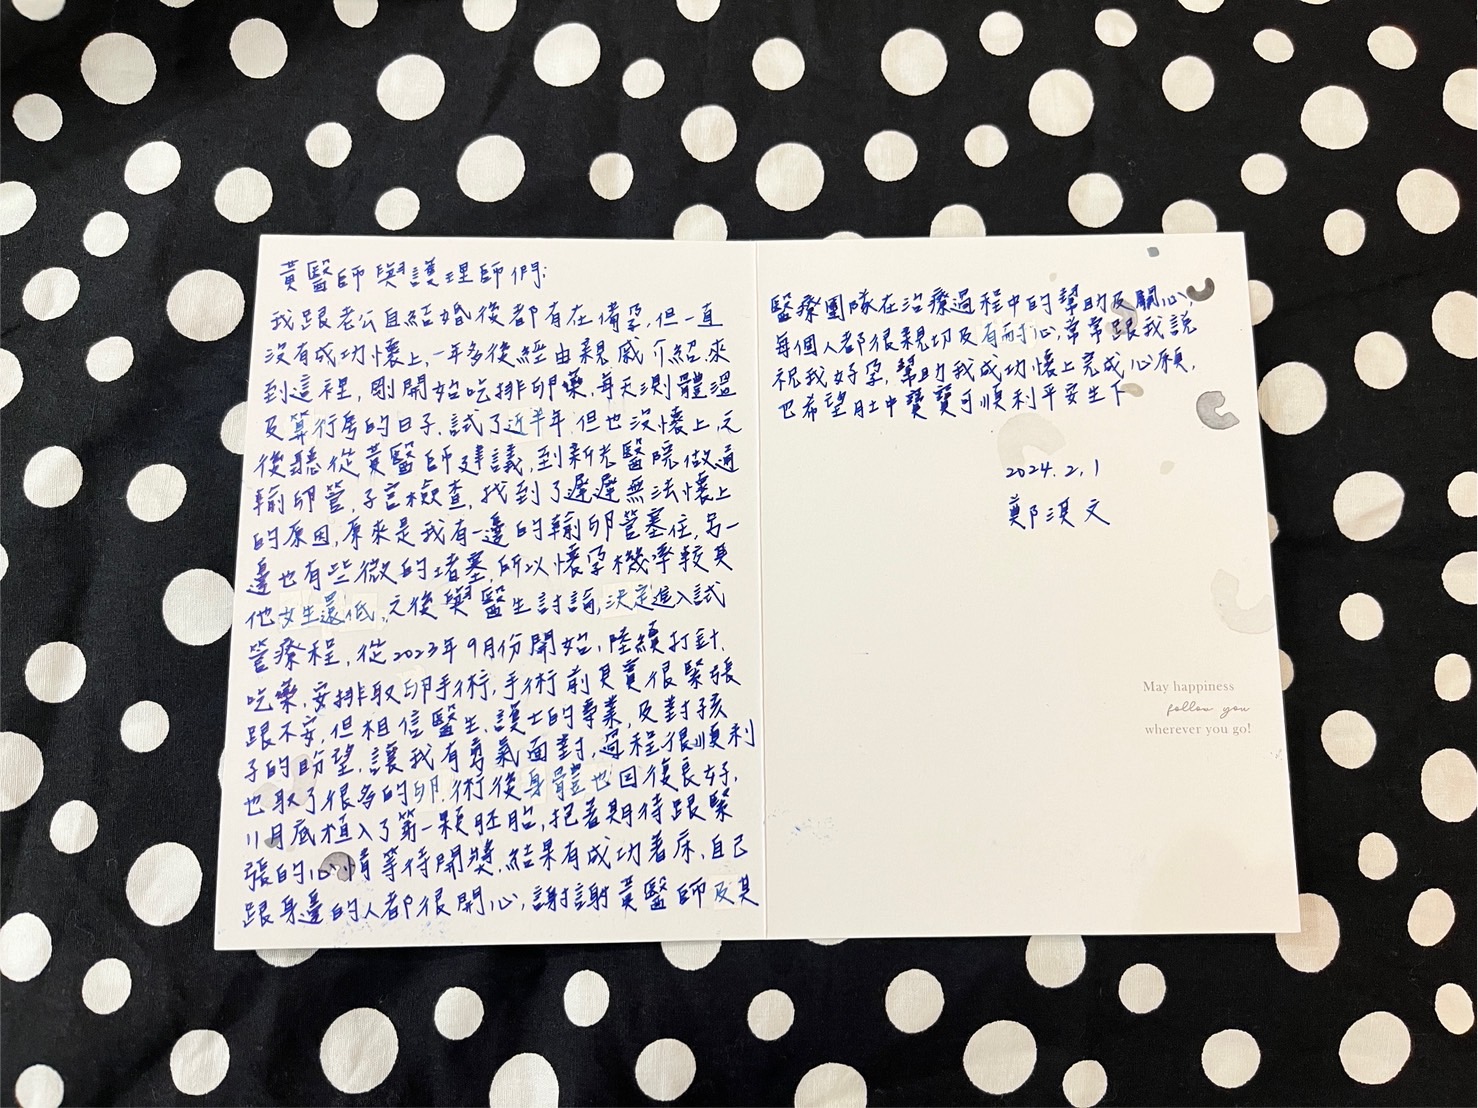 黃醫師與護理師們:
我跟老公自結婚後都有在備孕,但一直
沒有成功懷上,一年多後經由親戚介紹來
到這裡,剛開始吃排卵藥,每天測體溫
及算行房的日子,試了近半年,但也沒懷上,之
後聽從黃醫師建議,到新光醫院做通
輸卵管,子宮檢查,找到了遲遲無法懷上
的原因,原來是我有一邊的輸卵管塞住,另一
邊也有些微的堵塞,所以懷孕機率較其
他女生還低,之後與醫生討論,決定進入試
管療程,從2023年9月份開始,陸續打針、
吃藥,安排取卵手術,手術前其實很緊張
跟不安,但相信醫生、護士的專業,及對孩
子的盼望,讓我有勇氣面對,過程很順利
也取了很多的卵,術後身體也回復良好,
11月底植入了第一顆胚胎,抱著期待跟緊
張的心情等待開獎,結果有成功著床,自己
跟身邊的人都很開心,謝謝黃醫師及其
醫療團隊在治療過程中的幫助及關心,
每個人都很親切及有耐心,常常跟我說
祝我好孕,幫助我成功懷上完成心願,
也希望肚中寶寶可順利平安生下
2024.2.1
鄭淇文
May happiness
follow you
wherever you go!